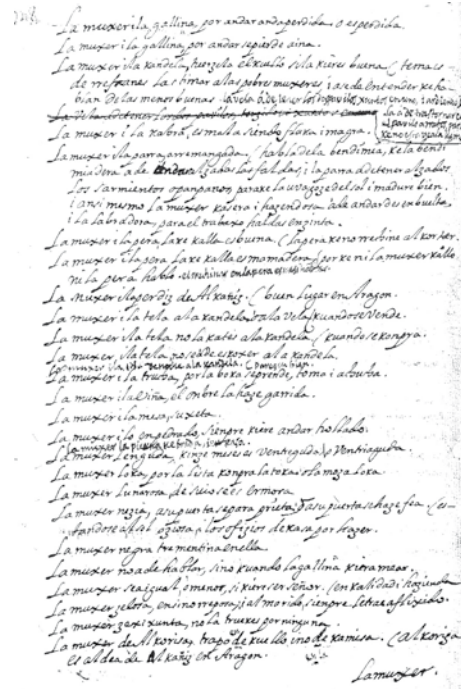 La muxer i la gallina, por andar anda perdida. o es perdida.
La muxer i la gallina por andar se pierde aina.
La muxer i la kandela, tuerzela el kuello si la kieres buena. ( tema es
de rrefranes lastimar a las pobres muxeres i a se de entender ke ha-
blan de las menos buenas.
La muxer i la kabra, es mala siendo floxa i magra.
La muxer i la parra arremangada. ( habla de la bendimia, ke la bendi
miadera a de alzadas las faldas, i la parra a de tener alzados
los sarmientos o panpanos, para ke la uva goze del sol i madure bien.
i ansi mesmo la muxer kasera i hazendosa a de andar desenbuelta,
i la labradora, para el trabaxo haldas en pinta.
La muxer i la pera, la ke kalla es buena. ( la pera ke no rrechina al kortar.
La muxer i la pera, la ke kalla es mamadera, porke ni la muxer kalló
ni la pera habló.
La muxer i la perdiz de Alkañiz. ( buen lugar en Aragon.
La muxer i la tela a la kandela. o a la vela, kuando se vende.
La muxer i la tela no la kates a la kandela. ( kuando se konpra.
La muxer, i la tela no se a de eskoxer a la kandela.
La muxer i la trucha, por la boka se prende, toma i achucha.
La muxer i la viña, el onbre la haze garrida.
La muxer i la mesa, suxeta.
La muxer i lo enpedrado, sienpre kiere andar hollado.
La muxer lenguda, kinze meses es ventreguda, o Ventriaguda.
La muxer loka, por la lista konpra la toka. o la moza loka.
La muxer lunarosa, de suio se es ermosa.
La muxer nezia, a su puerta se para prieta, o a su puerta se haze fea. ( es-
tandose alli oziosa, i los ofizios de kasa por hazer.
La muxer negra trementina en ella.
La muxer no a de hablar, sino kuando la gallina kiera mear.
La muxer sea igual, o menor, si kieres ser señor. ( en kalidad i hazienda
La muxer zelosa, en si no rreposa, i al marido, sienpre le trae aflixido.
La muxer zexixunta, no la trueкes por ninguna.
La muxer de Alkorisa, trapo de kuello, i no de kamisa. ( Alkoriza
es aldea de Alkañiz en Aragon.
La muxer.